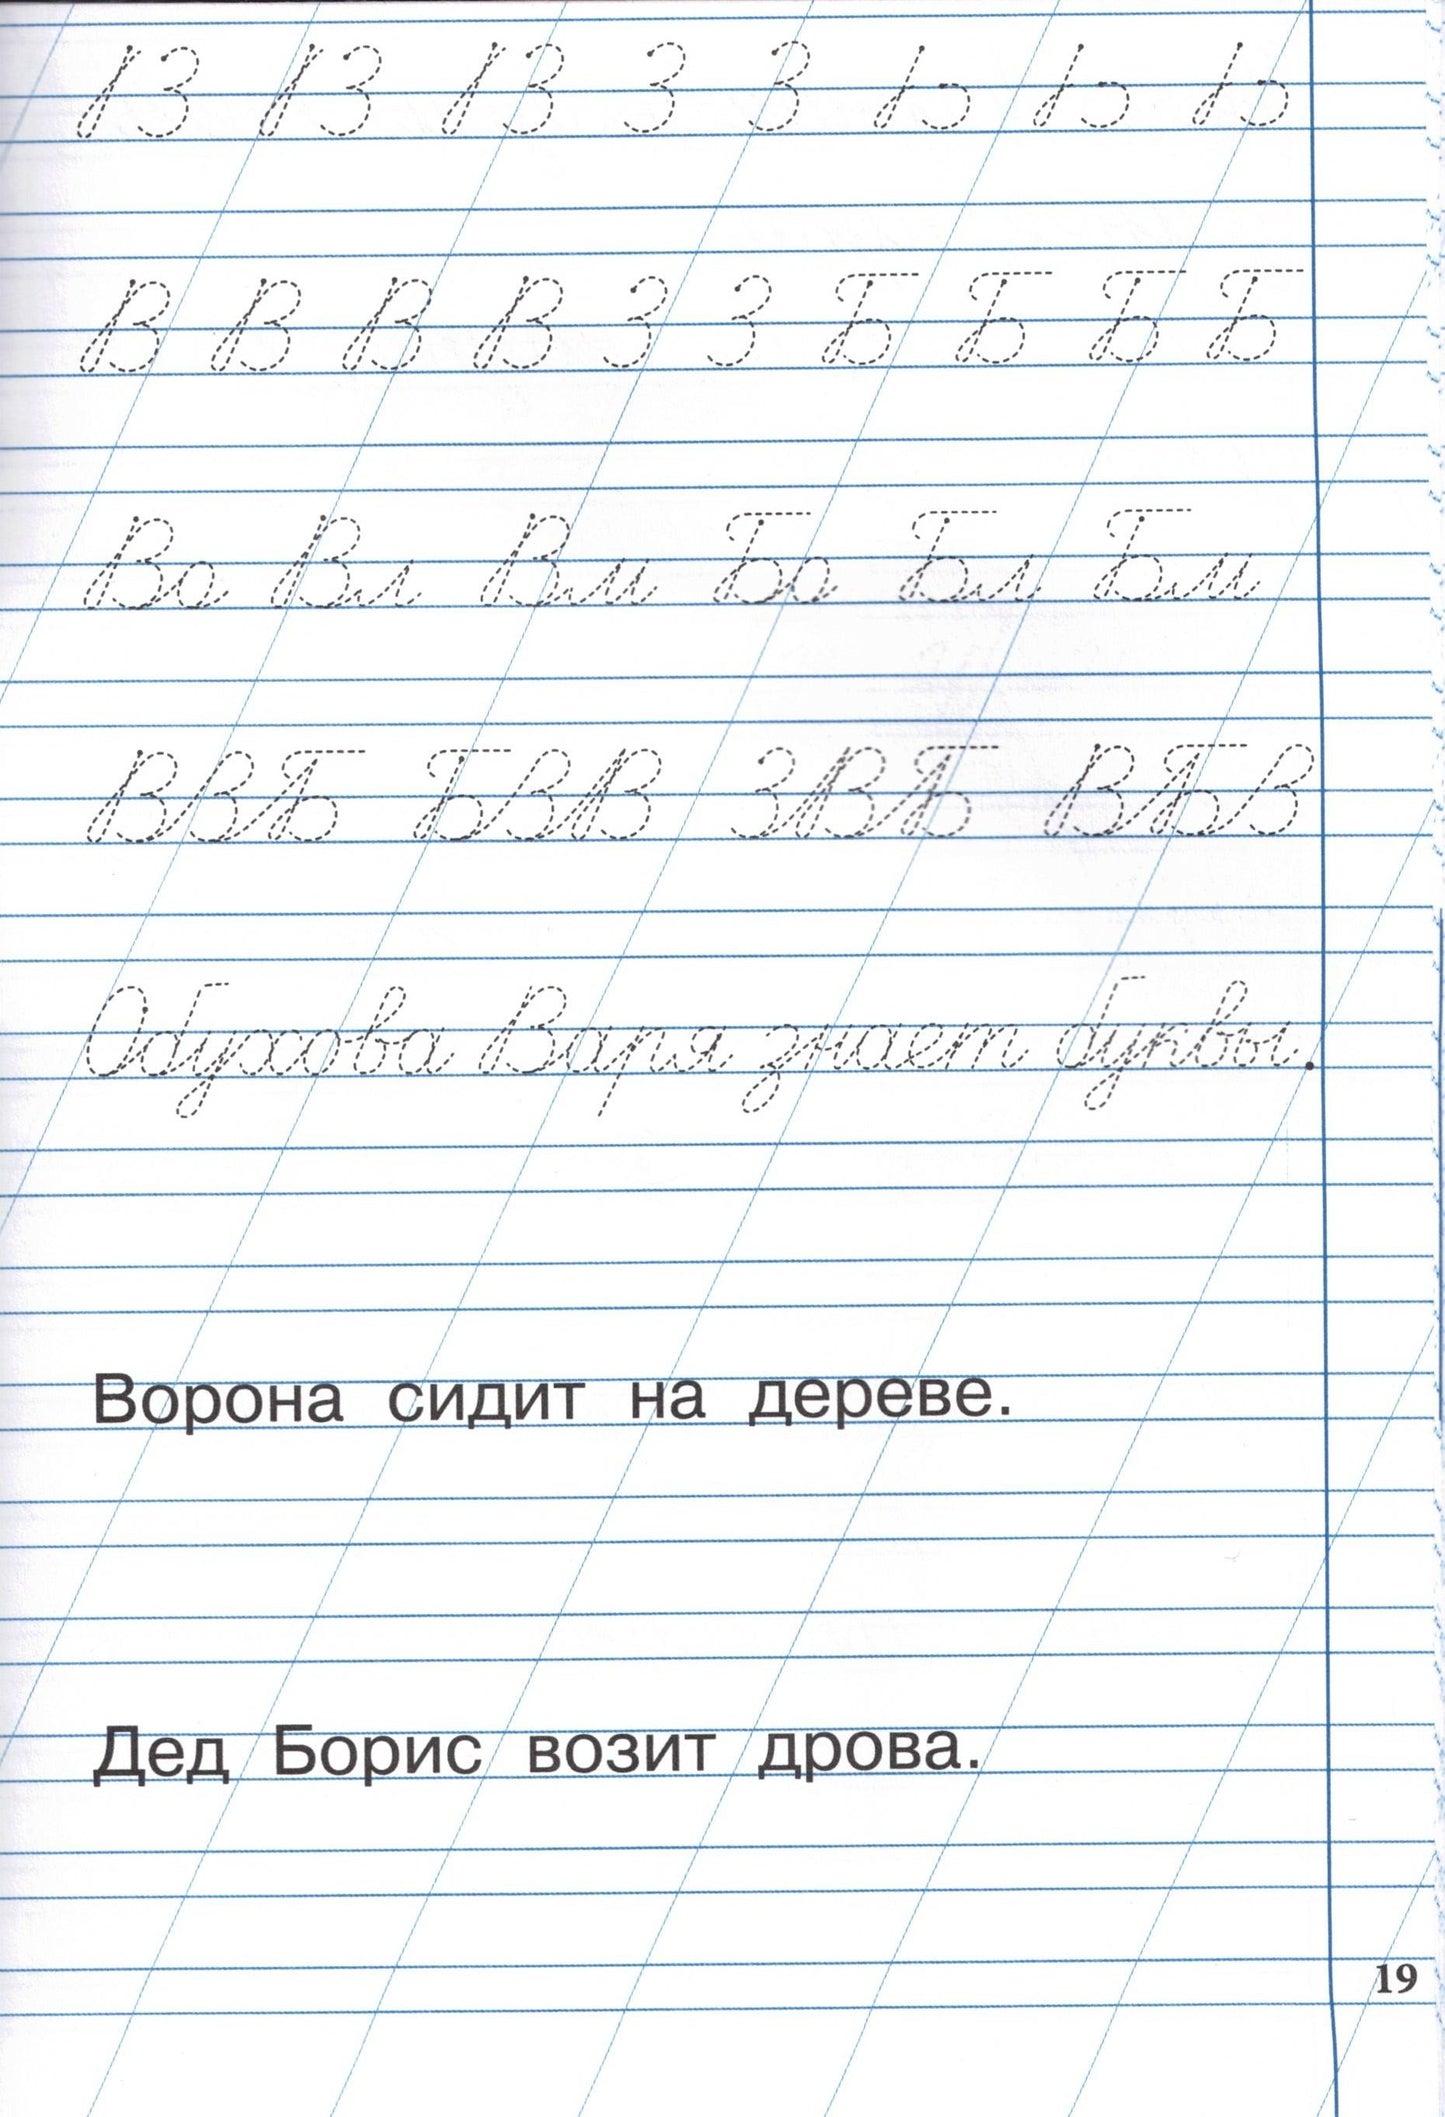 З З З З З Ь Ь Ь
В В В В З З Б Б Б Б
Во Вл Вм Бо Бл Бм
ВЗБ БЗВ ЗВБ ВБЗ
Обухова Варя знает буквы.
Ворона сидит на дереве.
Дед Борис возит дрова.
19